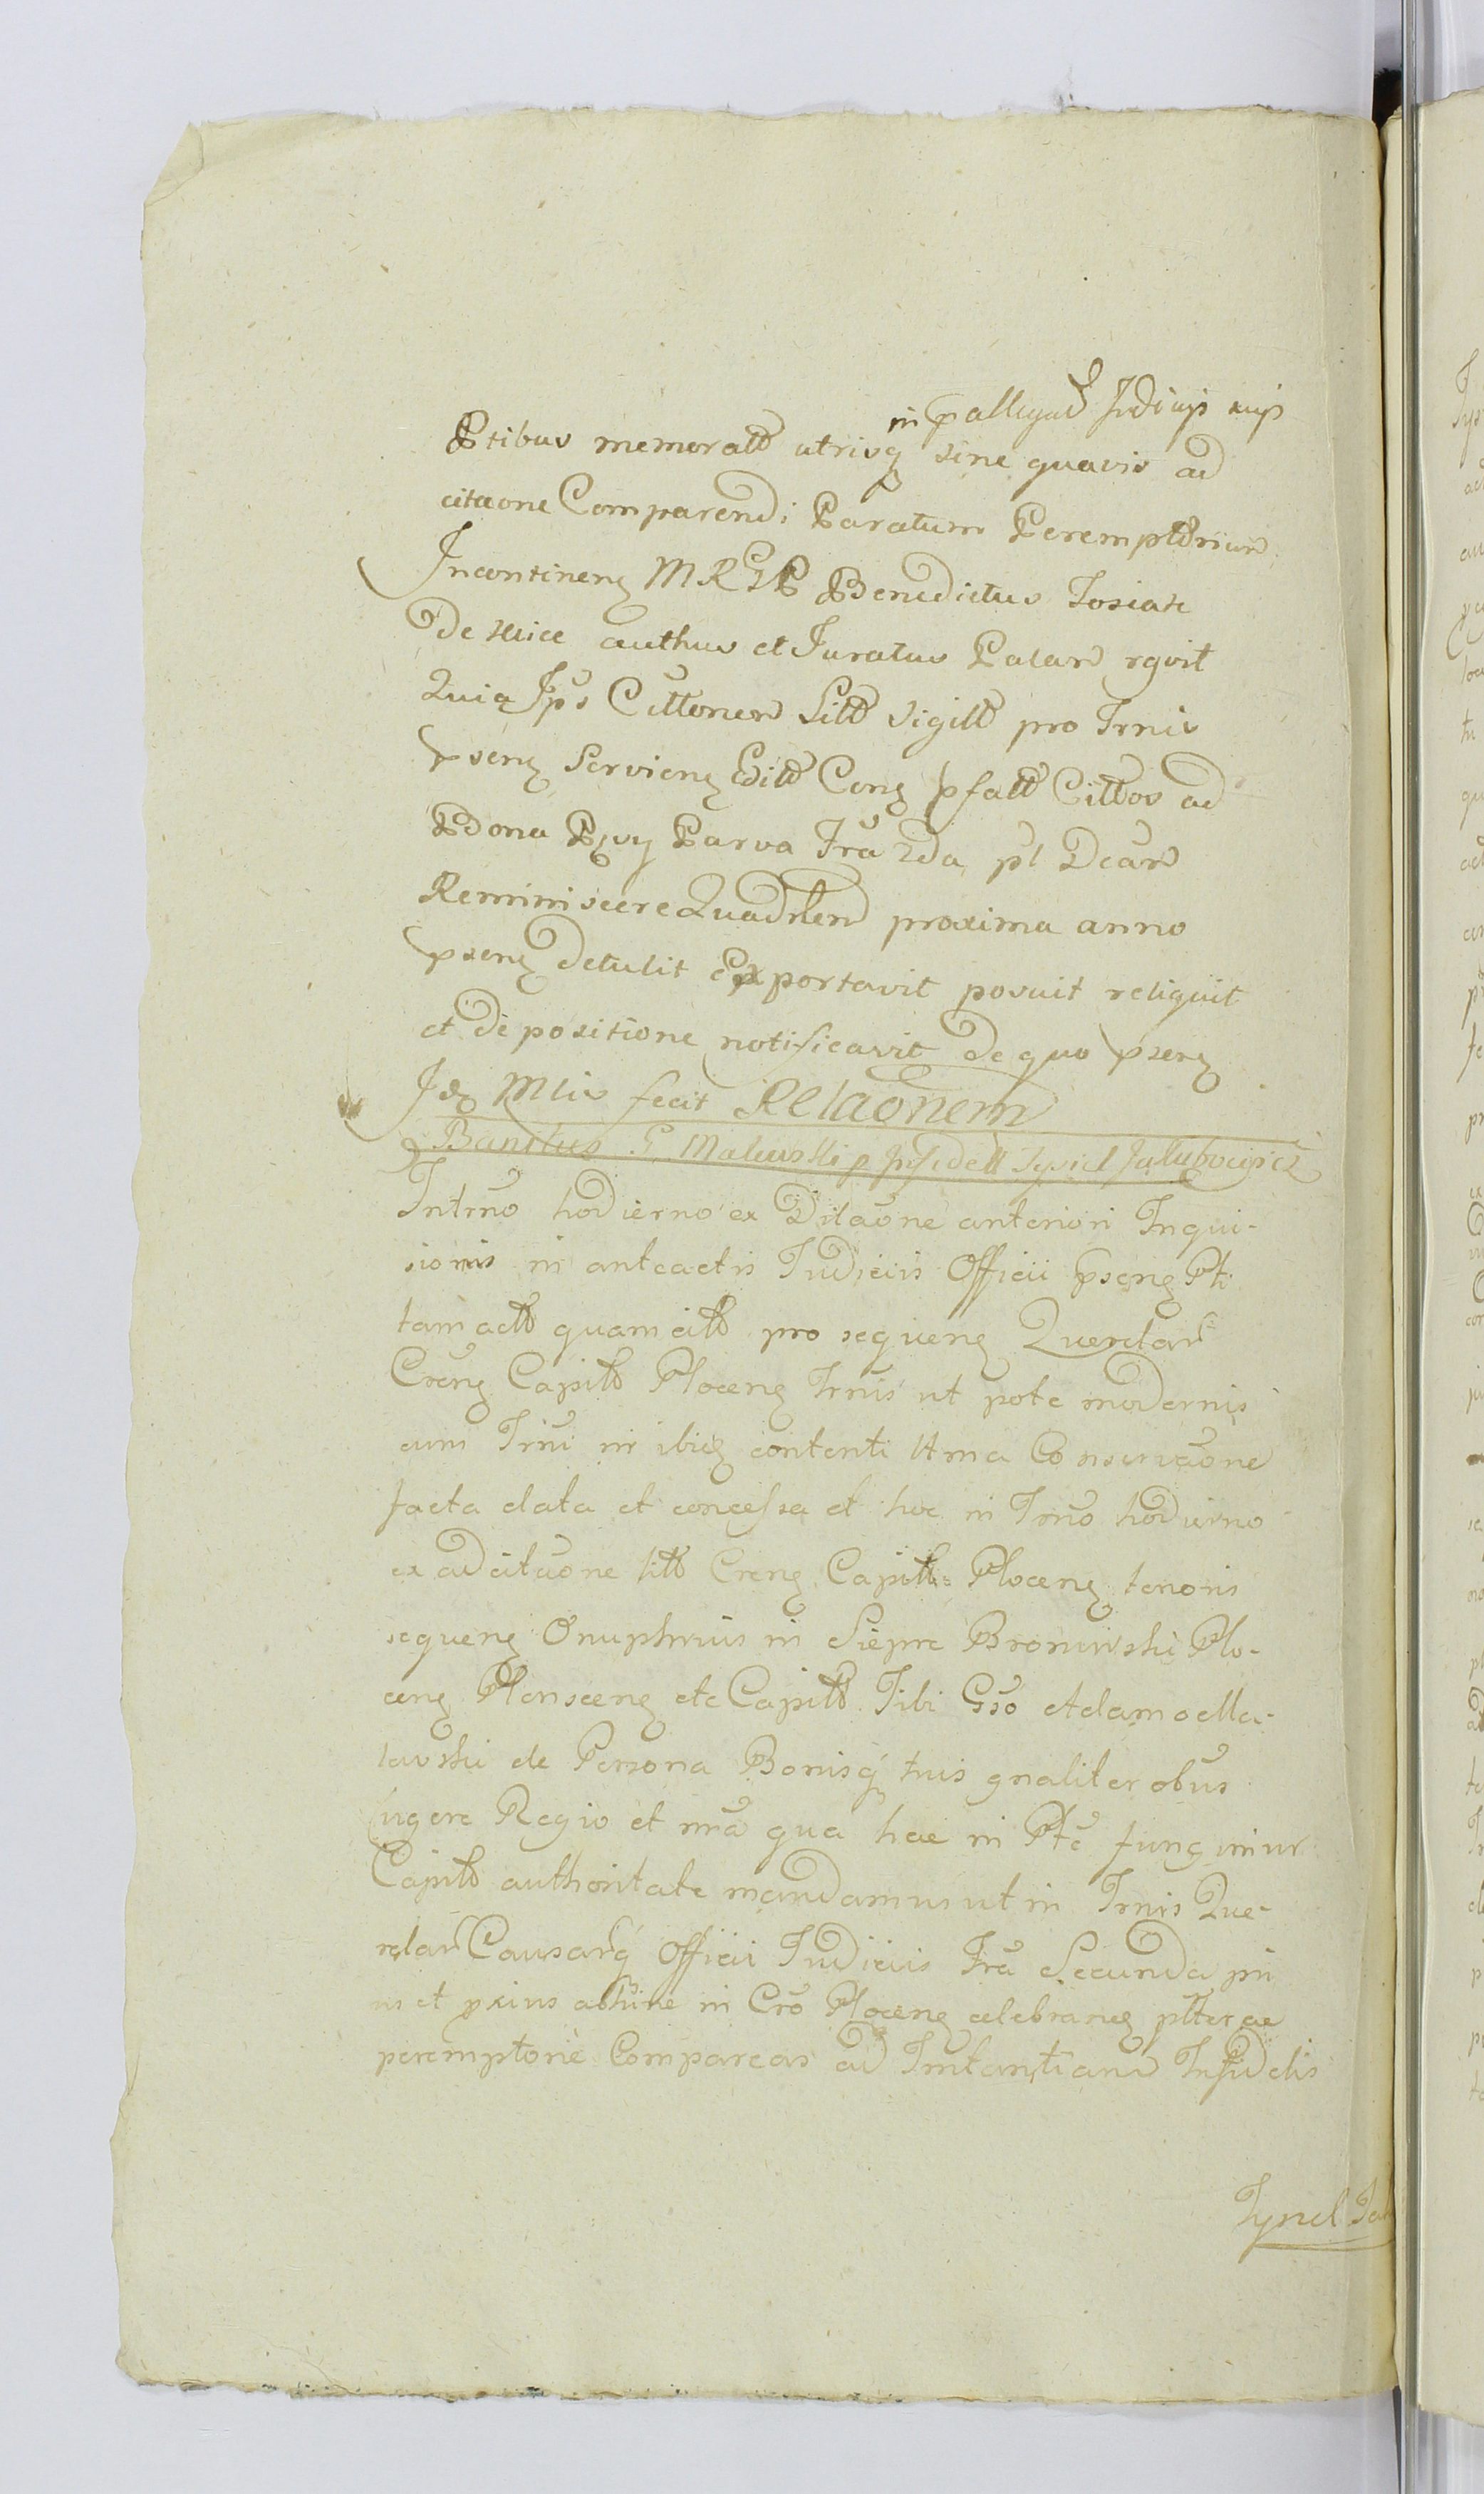 in pallegat Judicijs sup
Ptibus memoratt utrisq sine quavis ad
citaone Comparendi Paratum Peremptorium
Incontineng MRGP Benedictus Tosiak
De Mice authus et Juratus Palam rgvit
Quia Ips Cittonem Litt Sigill pro Trnis
pseng Servieng Editt Ceng pfatt Cittos ad
Bdona Parva Fra 2da pt Dcam
Reminiscere Quadrlem proxima anno
pseng detulit Exportavit posuit reliquit
et de positione notificavit de quo pseng
Idz Mlis fecit Relaonem
Banitus G. Malewski p Infidell Tysiel Jakubowicz
In trno hodierno ex Dilaone anteriori Inqui-
sionis in anteactis Judiciis Officii pseng Pti
tam actt quam citt pro sequeng Querelar
Creng Capitt Ploceng Trnis ut pote modernis
cum Trni in ibidz contenti Utma Conservaone
facta data et concessa et hoc in Trno hodierno
ex adcitaone litt Creng Capitt Ploceng tenoris
sequeng Onuphrius in Sieprc Bromirski Plo-
ceng Plonsceng etc Capitt Tibi Gso Adamo Ma-
lavski de Persona Bonisq tuis gnaliter obus
vigore Regio et nra qua hac in Pte fungimur
Capitt authoritate mandamus ut in Trnis Que-
relar Causarq Officii Judiciis Fra Secunda pri
us et pxius abhinc in Cro Ploceng celebrang ptter ac
peremptorie Compareas ad Instantiam Infidelis
Tysiel